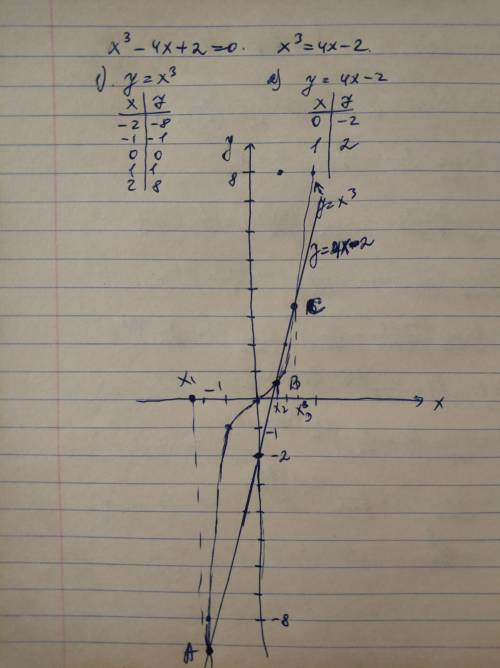 x³ - 4x + 2 = 0. x³ = 4x - 2.
1). y = x³
x | y
-2 | -8
-1 | -1
0 | 0
1 | 1
2 | 8
2) y = 4x - 2
x | y
0 | -2
1 | 2
y
8
y = x³
y = 4x - 2
C
B
x₁
-1
x₂
x₃
x
-1
-2
-8
A